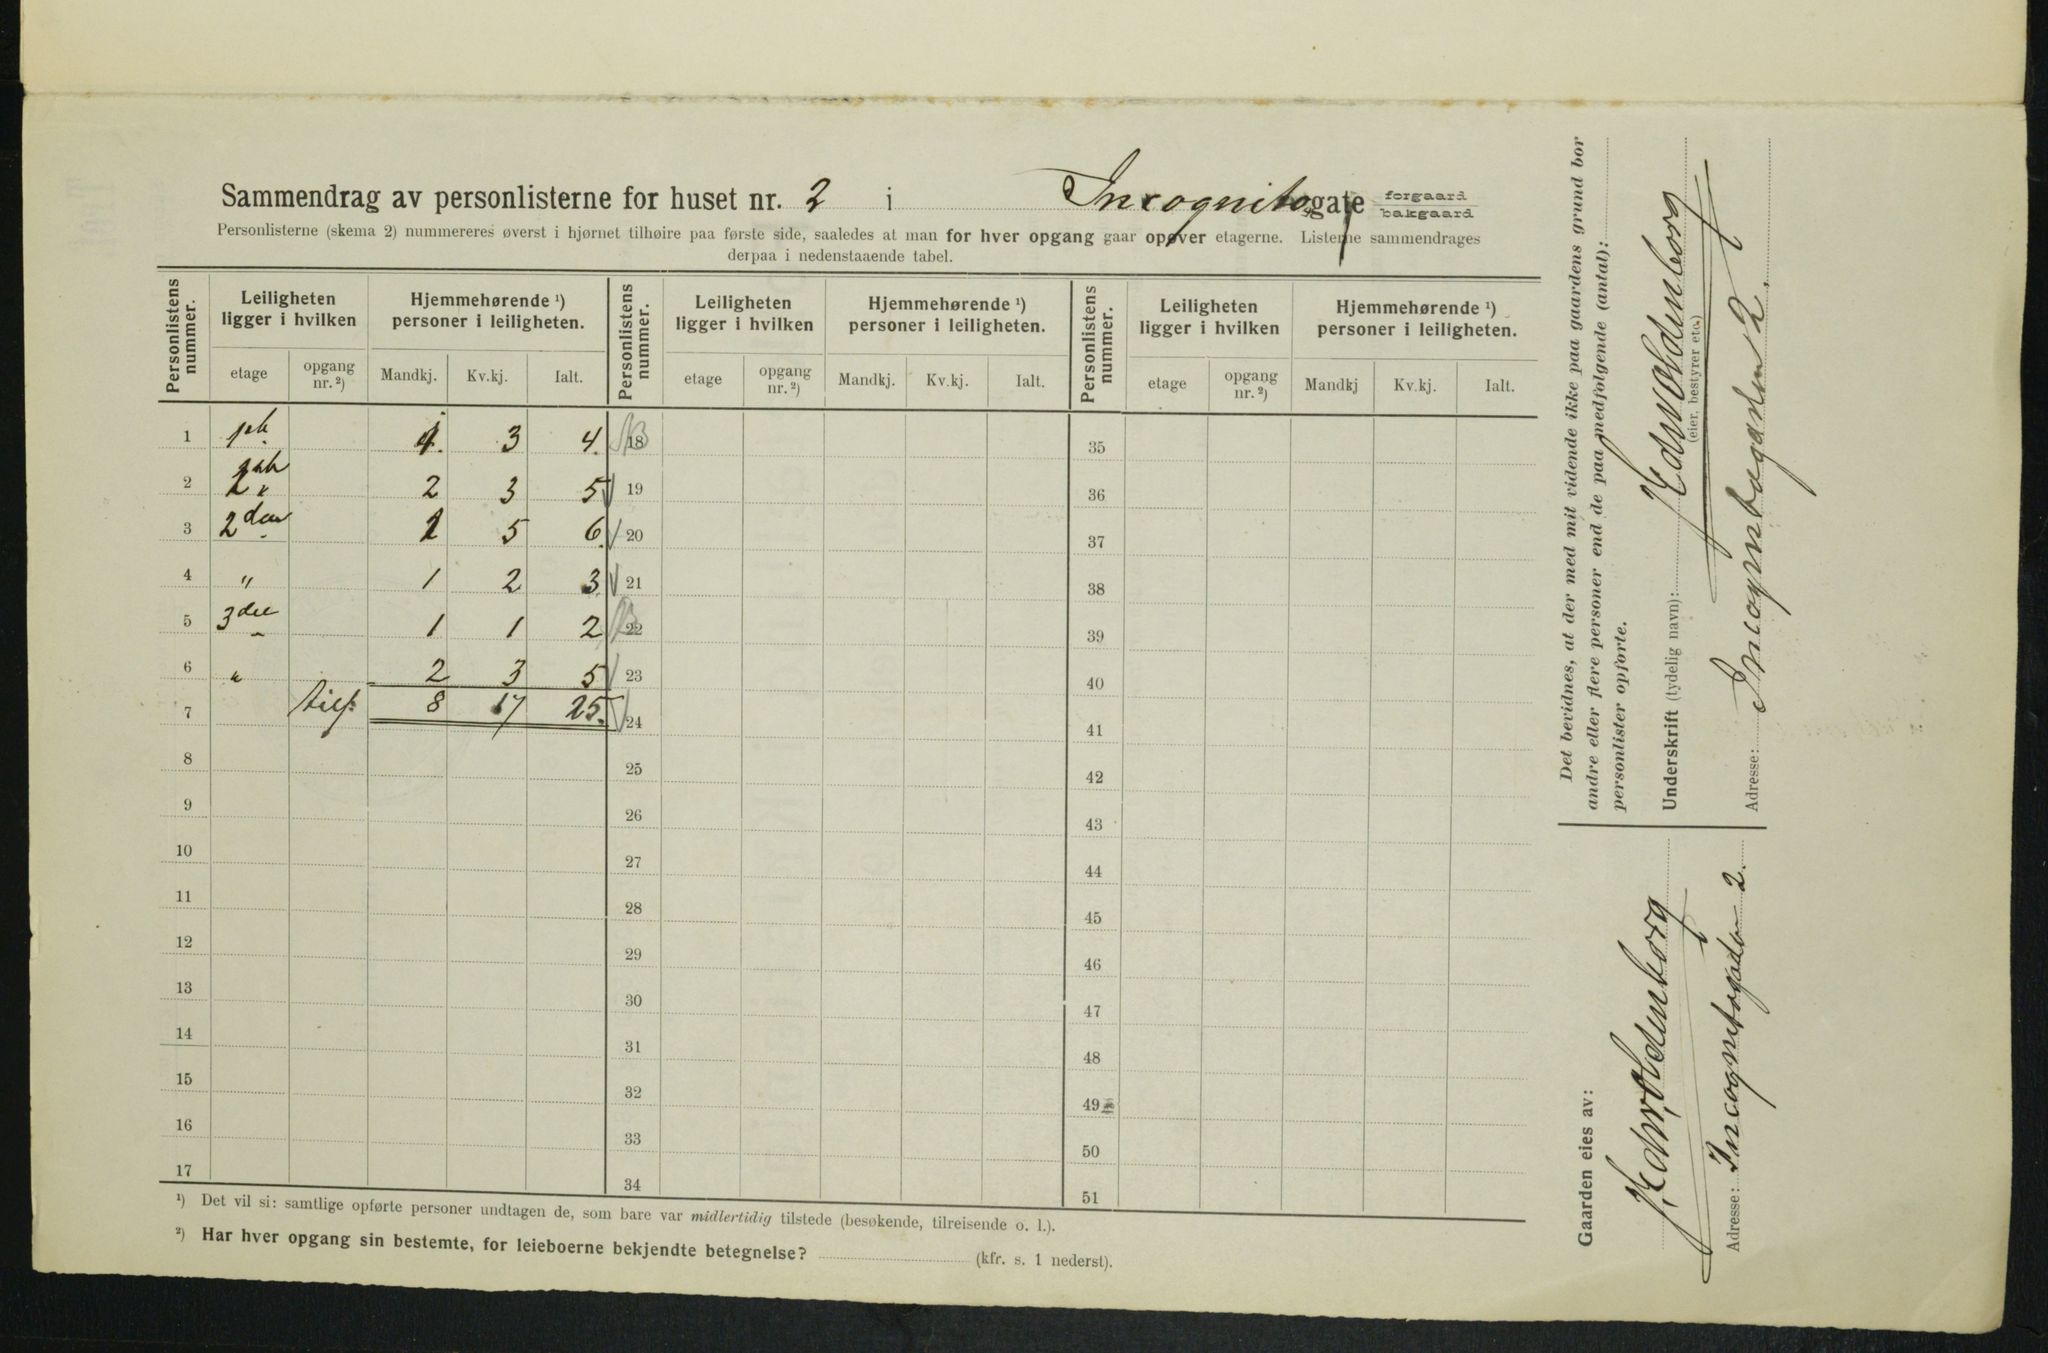 Sammendrag av personlisterne for huset nr. 2 i Incognitogate forgaard bakgaard
Personlisterne (skema 2) nummereres øverst i hjørnet tilhøire paa første side, saaledes at man for hver opgang gaar opover etagerne. Listerne sammendrages
derpaa i nedenstaaende tabel.
Personlistens nummer. Leiligheten ligger i hvilken Hjemmehørende ¹) personer i leiligheten. Personlistens nummer. Leiligheten ligger i hvilken Hjemmehørende ¹) personer i leiligheten. Personlistens nummer. Leiligheten ligger i hvilken Hjemmehørende ¹) personer i leiligheten.
etage opgang nr. ²) Mandkj. Kv.kj. Ialt. etage opgang nr. ²) Mandkj. Kv.kj. Ialt. etage opgang nr. ²) Mandkj Kv.kj. Ialt.
1 3 4. 18 35
2 2 3 5 19 36
3 2den 1 5 6. 20 37
4 " 1 2 3 21 38
5 1 1 2 22 39
6 " 2 3 5 23 40
7 8 17 25. 24 41
8 25 42
9 26 43
10 27 44
11 28 45
12 29 46
13 30 47
14 31 48
15 32 49
16 33 50
17 34 51
¹) Det vil si: samtlige opførte personer undtagen de, som bare var midlertidig tilstede (besøkende, tilreisende o. l.).
²) Har hver opgang sin bestemte, for leieboerne bekjendte betegnelse? (kfr. s. 1 nederst).
Det bevidnes, at der med mit vidende ikke paa gaardens grund bor
andre eller flere personer end de paa medfolgende (antal):
personlister opforte.
Underskrift (tydelig navn): Edv. Oldenborg
(eier, bestyrer etc.)
Adresse: Incognitogaden 2.
Gaarden eies av:
Edv. Oldenborg
Adresse: Incognitogaden 2.